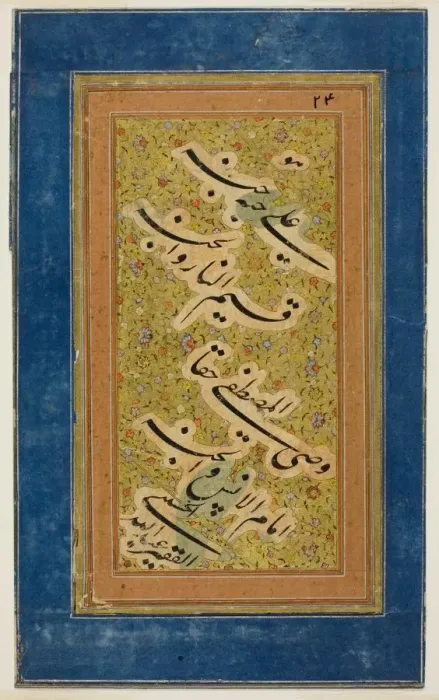 ۲۴
هو
علی حبه جنه
قسیم النار والجنه
وصی المصطفی حقا
امام الانس والجنه
الفقیر عبدالله الحسینی